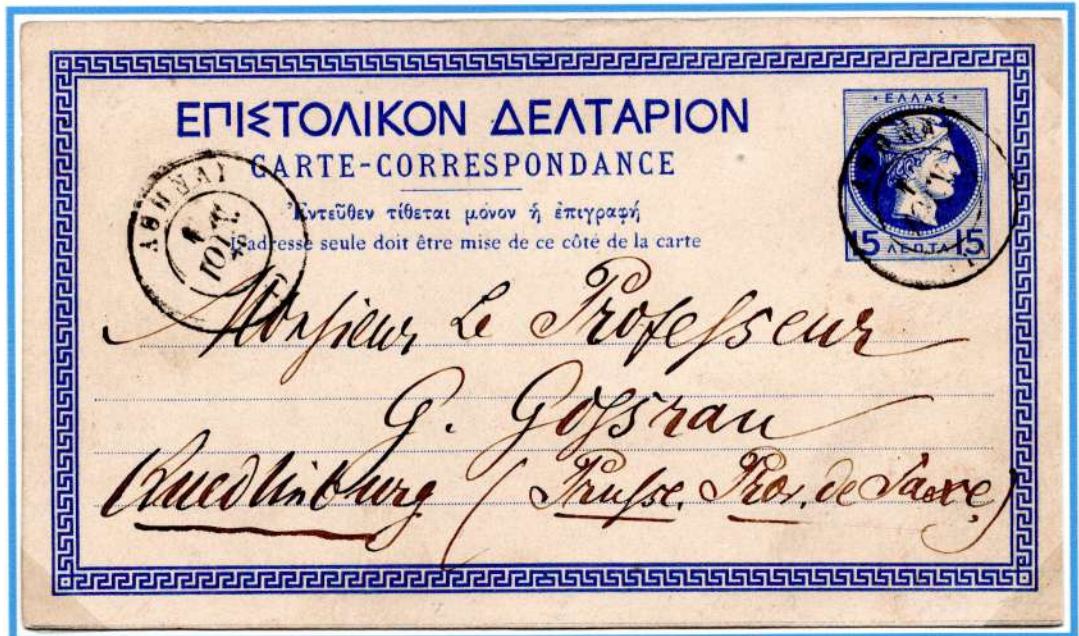 ΕΠΙΣΤΟΛΙΚΟΝ ΔΕΛΤΑΡΙΟΝ
CARTE-CORRESPONDANCE
Ἐντεῦθεν τίθεται μόνον ἡ ἐπιγραφή
L'adresse seule doit être mise de ce côté de la carte
ΕΛΛΑΣ
15 ΛΕΠΤΑ 15
ΑΘΗΝΑΙ
Monsieur Le Professeur
G. Gossrau
Quedlinburg (Prusse. Prov. de Saxe)